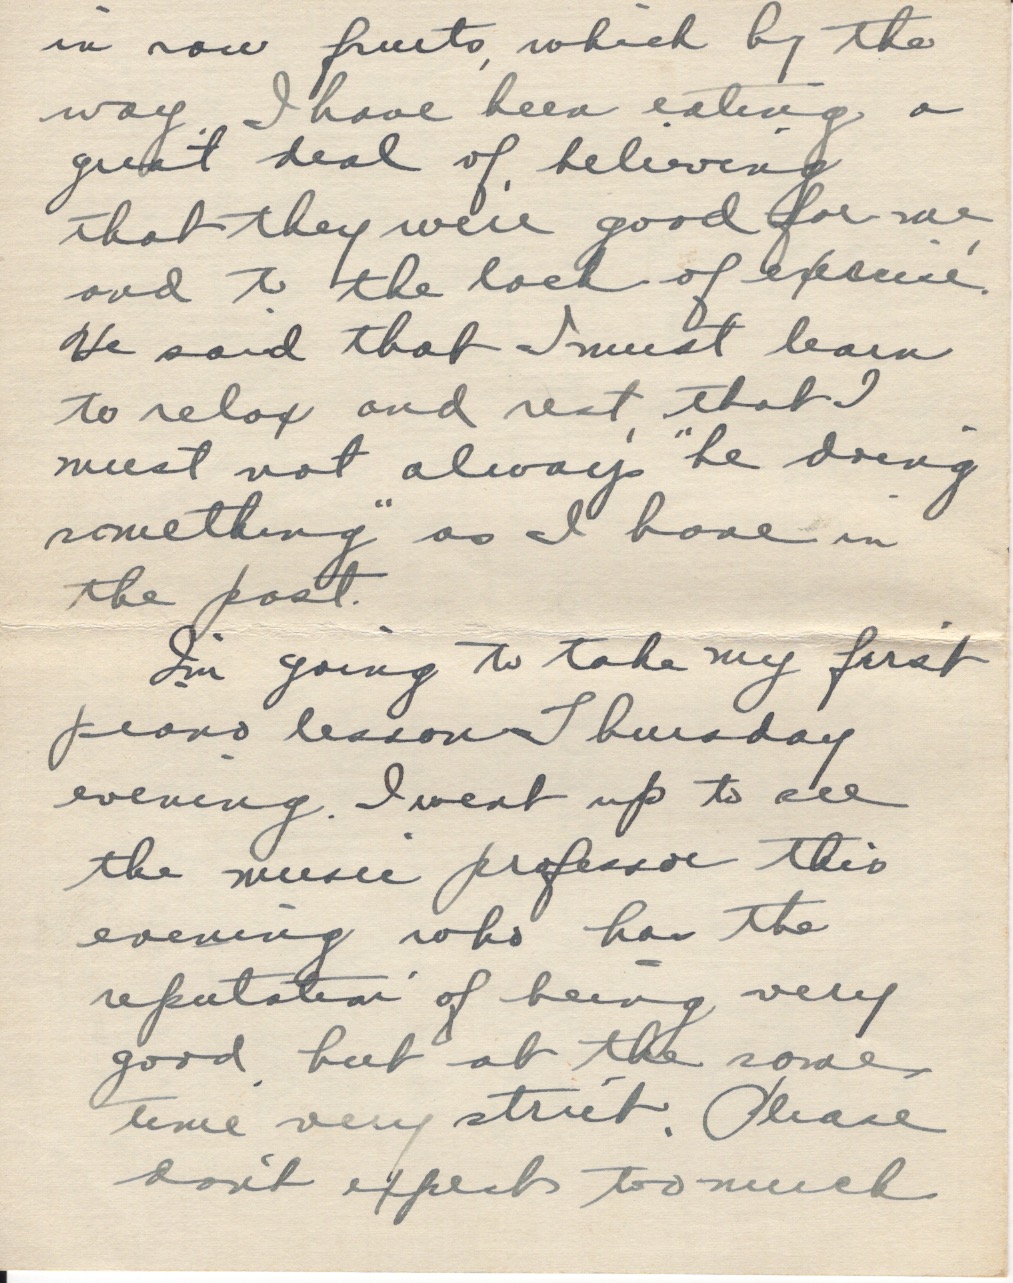 in raw fruits, which by the
way, I have been eating a
great deal of, believing
that they were good for me,
and to the lack of exercise.
He said that I must learn
to relax and rest, that I
must not always "be doing
something" as I have in
the past.
I'm going to take my first
piano lesson Thursday
evening. I went up to see
the music professor this
evening who has the
reputation of being very
good, but at the same
time very strict. Please
don't expect too much